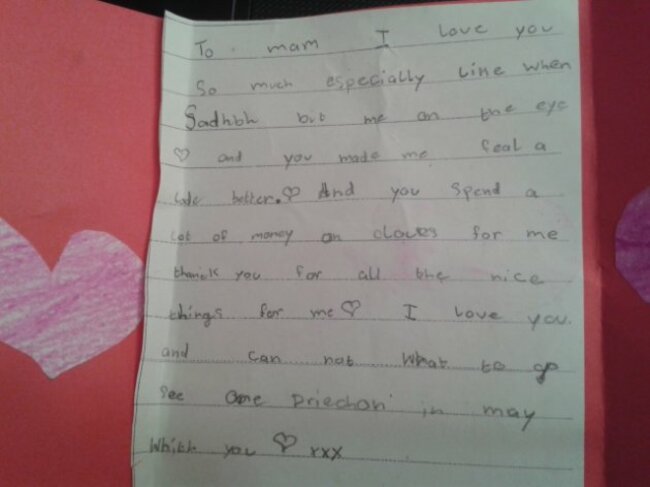 To mam I love you
So much especially Line when
Sadhbh bit me on the eye
♡ and you made me feal a
better.♡ And you Spend a
lot of money on cloues for me
thanck you for all the nice
things for me ♡ I Love you.
and can not what to go
See One Driechon in may
Whith you ♡ xxx